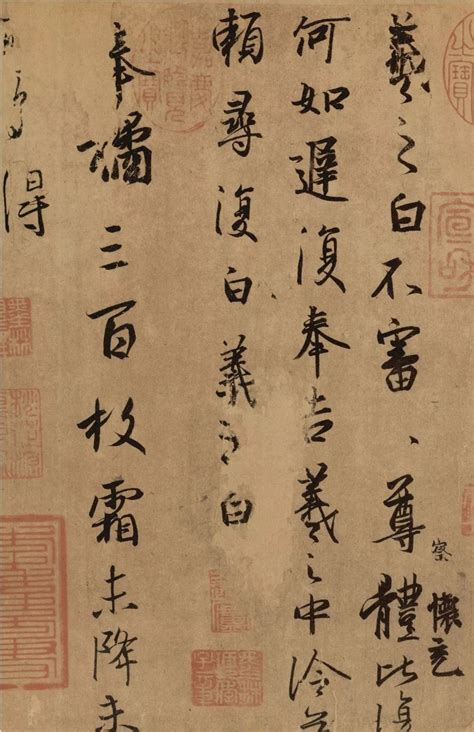 羲之白不審、尊體比復
察
懷充
何如遲復奉告羲之中冷無
賴尋復白羲之白
奉橘三百枚霜未降未
可多得